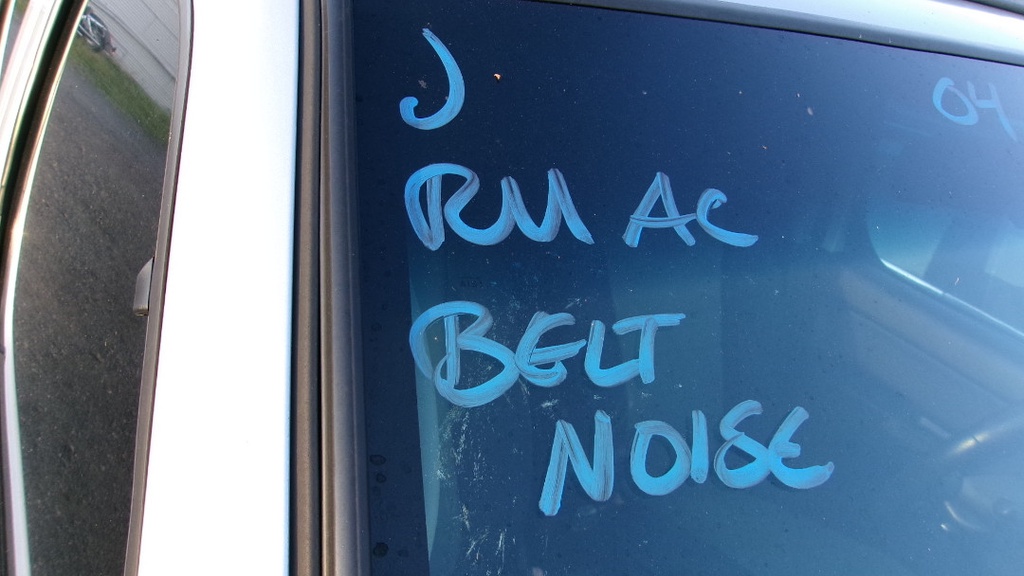 J
04
RM AC
BELT
NOISE